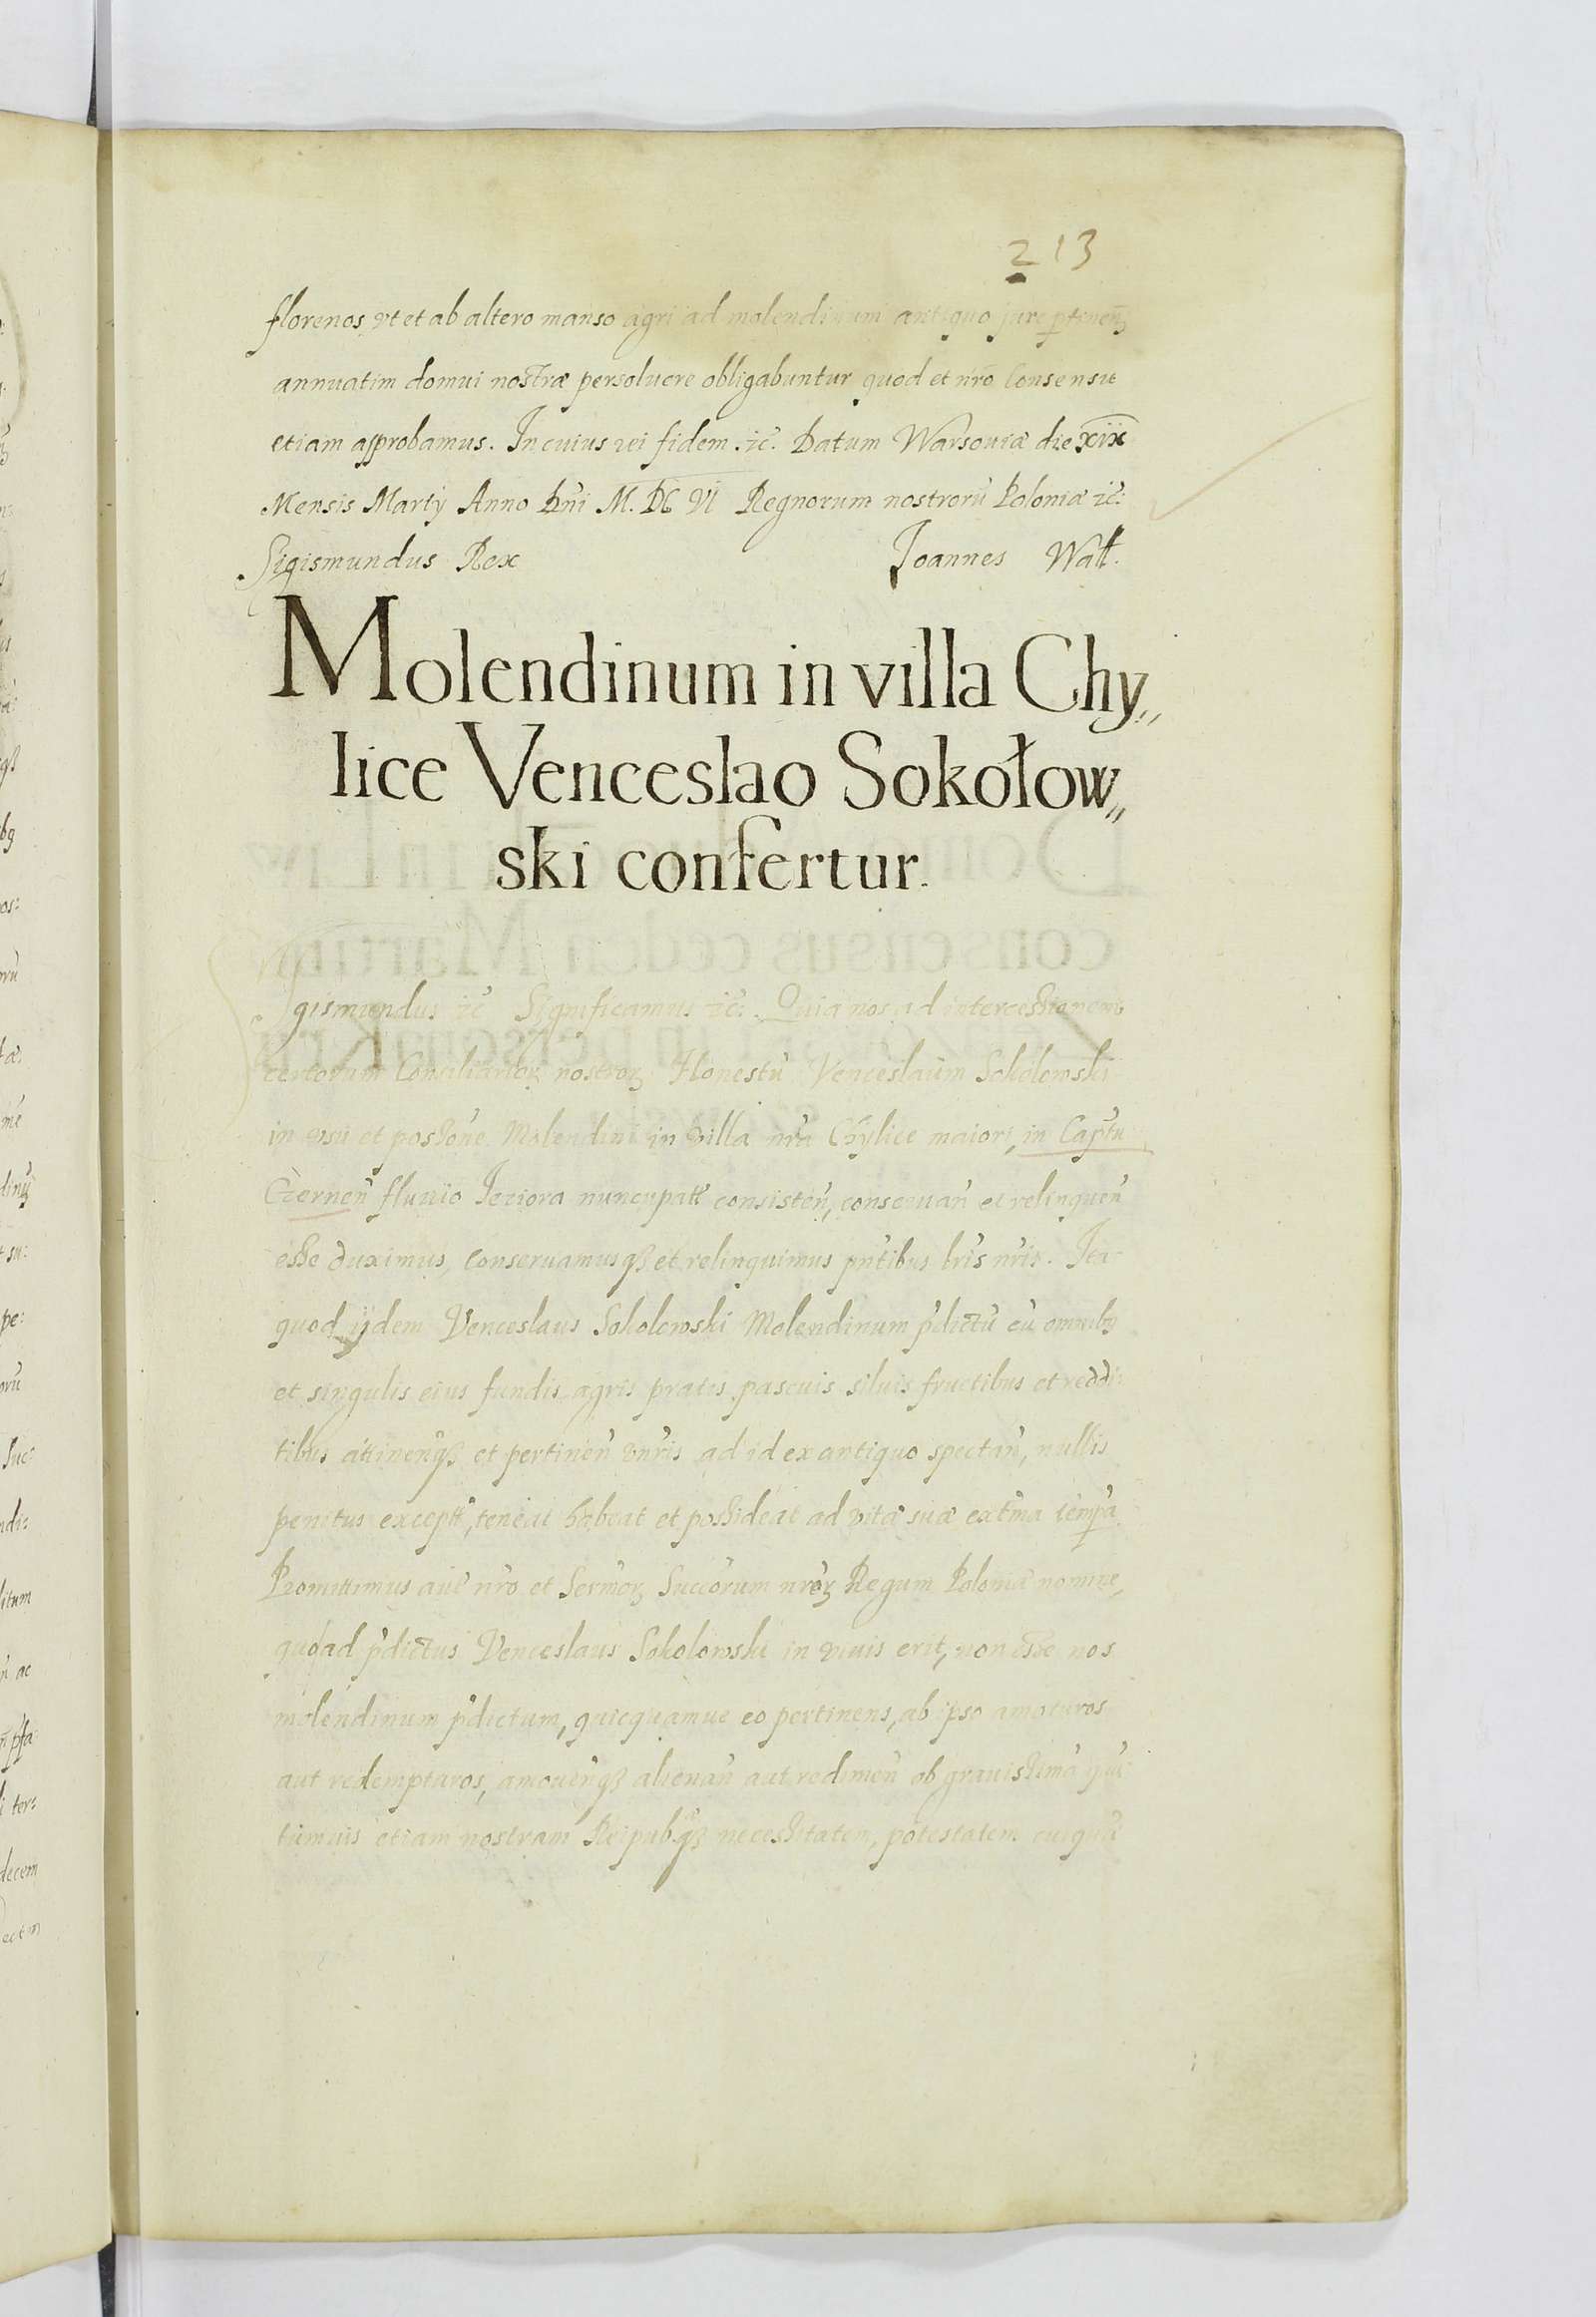 213
florenos ut et ab altero manso agri ad molendinum antiquo jure ptinen̄
annuatim domui nostræ persoluere obligabuntur quod et nro Consensu
etiam approbamus. In cuius rei fidem. &c. Datum Warsouiæ die XIIX
Mensis Martÿ Anno Dni M. DC VI Regnorum nostrorū Poloniæ &c:
Sigismundus Rex Joannes Wall.
Molendinum in villa Chy„
lice Venceslao Sokołow„
ski confertur.
gismundus &c Significamus &c: Quia nos ad intercessionem
certorum Consiliarior nostror Honestū Venceslaum Sokolowski
in usu et possone Molendini in villa nra Chylice maiori, in Captu
Czernen fluuio Jeziora nuncupatt consisten, conseruan et relinquen
esse duximus, Conseruamusq3 et relinquimus pntibus lris nris. Ita
quod ijdem Venceslaus Sokolowski Molendinum pdictū cū omnib9
et singulis eius fundis agris pratis pascuis siluis fructibus et reddi
tibus attinenq3 et pertinen unris ad id ex antiquo spectan, nullis
penitus exceptt, teneat habeat et possideat ad vitæ suæ extma tempa
Promittimus aut nro et Sermor Succorum nror Regum Poloniæ nomine,
quoad pdictus Venceslaus Sokolowski in viuis erit, non esse nos
molendinum pdictum, quicquamue eo pertinens, ab ipso amoturos
aut redempturos, amouenq3 alienan aut redimen ob grauissimā qūa
tumuis etiam nostram Reipubq3 necessitatem, potestatem cuiquā